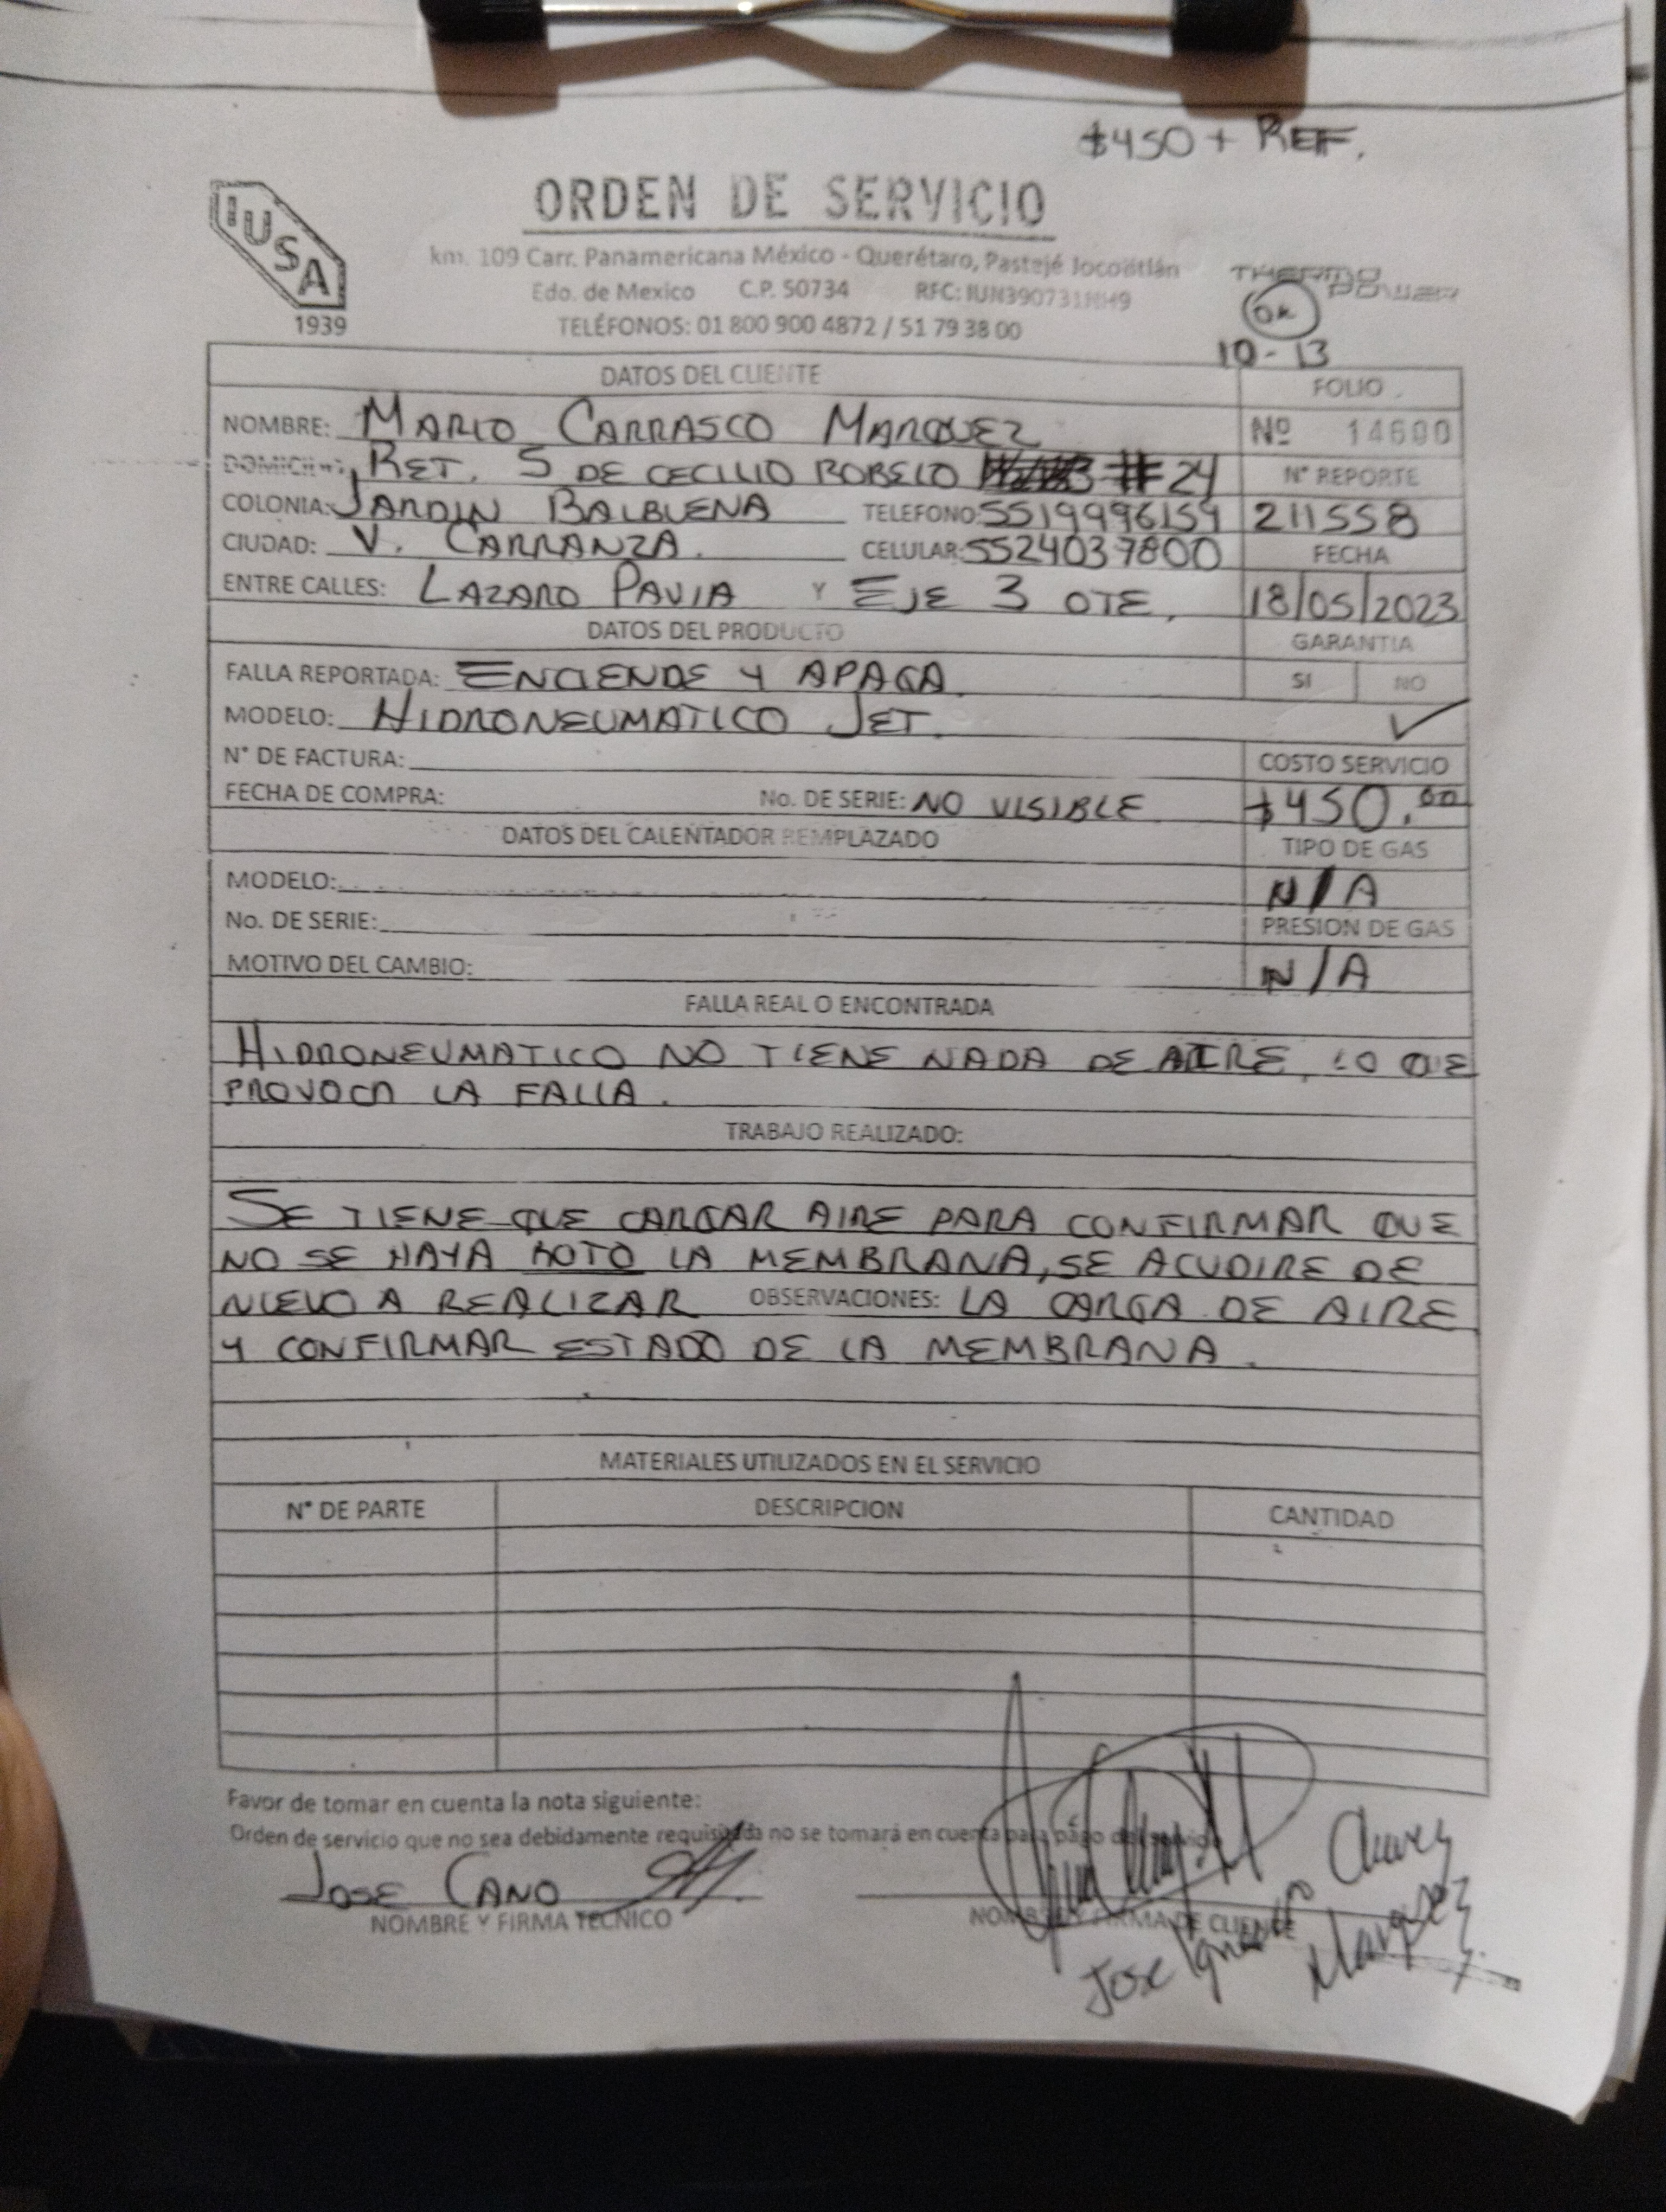 $450 + REF.
IUSA
1939
ORDEN DE SERVICIO
km. 109 Carr. Panamericana México - Querétaro, Pastejé Jocotitlán
Edo. de Mexico C.P. 50734 RFC: IUN390731NH9
TELÉFONOS: 01 800 900 4872 / 51 79 38 00
THERMO POWER
OK
10 - 13
DATOS DEL CLIENTE
FOLIO
NOMBRE: MARIO CARRASCO MARQUEZ
Nº 14690
DOMICILIO: RET. 5 DE CECILIO ROBELO #24
N° REPORTE
COLONIA: JARDIN BALBUENA TELEFONO: 5519996159
211558
CIUDAD: V. CARRANZA. CELULAR: 5524037800
FECHA
ENTRE CALLES: LAZARO PAVIA Y EJE 3 OTE.
18/05/2023
DATOS DEL PRODUCTO
GARANTIA
FALLA REPORTADA: ENCIENDE Y APAGA
SI NO
MODELO: HIDRONEUMATICO JET.
✓
N° DE FACTURA:
COSTO SERVICIO
FECHA DE COMPRA: No. DE SERIE: NO VISIBLE
$450.00
DATOS DEL CALENTADOR REMPLAZADO
TIPO DE GAS
MODELO:
N/A
No. DE SERIE:
PRESION DE GAS
MOTIVO DEL CAMBIO:
N/A
FALLA REAL O ENCONTRADA
HIDRONEUMATICO NO TIENE NADA DE AIRE, LO QUE
PROVOCA LA FALLA.
TRABAJO REALIZADO:
SE TIENE QUE CARGAR AIRE PARA CONFIRMAR QUE
NO SE HAYA ROTO LA MEMBRANA, SE ACUDIRE DE
NUEVO A REALIZAR OBSERVACIONES: LA CARGA DE AIRE
Y CONFIRMAR ESTADO DE LA MEMBRANA.
MATERIALES UTILIZADOS EN EL SERVICIO
N° DE PARTE DESCRIPCION CANTIDAD
Favor de tomar en cuenta la nota siguiente:
Orden de servicio que no sea debidamente requisitada no se tomará en cuenta para pago del servicio
JOSE CANO
NOMBRE Y FIRMA TECNICO
NOMBRE Y FIRMA DE CLIENTE
Jose Ignacio Marquez